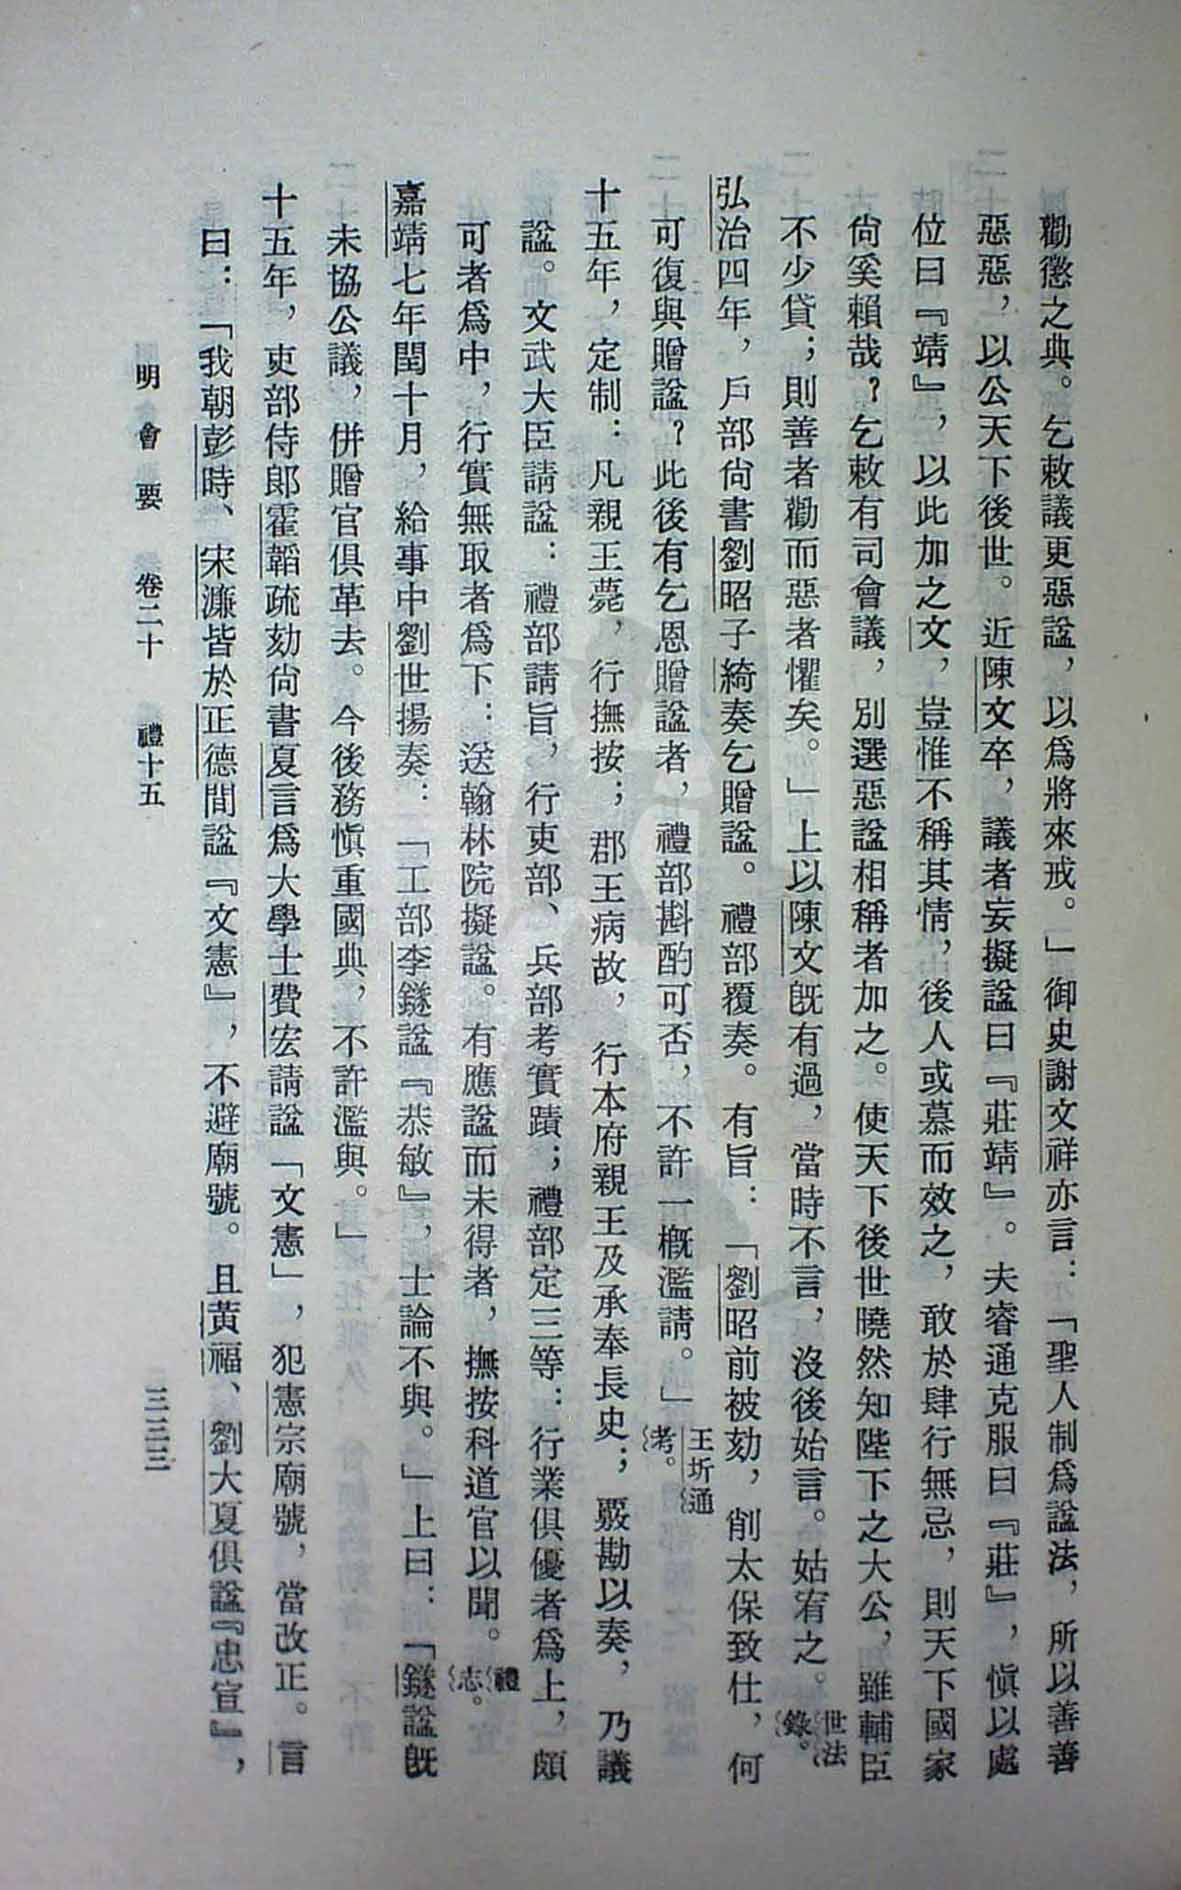 勸懲之典。乞敕議更惡諡，以爲將來戒。」御史謝文祥亦言：「聖人制爲諡法，所以善善
惡惡，以公天下後世。近陳文卒，議者妄擬諡曰『莊靖』。夫睿通克服曰『莊』，愼以處
位曰『靖』，以此加之文，豈惟不稱其情，後人或慕而效之，敢於肆行無忌，則天下國家
尙奚賴哉？乞敕有司會議，別選惡諡相稱者加之。使天下後世曉然知陛下之大公，雖輔臣
不少貸；則善者勸而惡者懼矣。」上以陳文旣有過，當時不言，沒後始言。姑宥之。世法錄。
弘治四年，戶部尙書劉昭子綺奏乞贈諡。禮部覆奏。有旨：「劉昭前被劾，削太保致仕，何
可復與贈諡？此後有乞恩贈諡者，禮部斟酌可否，不許一概濫請。」王圻通考。
十五年，定制：凡親王薨，行撫按；郡王病故，行本府親王及承奉長史；覈勘以奏，乃議
諡。文武大臣請諡：禮部請旨，行吏部、兵部考實蹟；禮部定三等：行業俱優者爲上，頗
可者爲中，行實無取者爲下：送翰林院擬諡。有應諡而未得者，撫按科道官以聞。禮志。
嘉靖七年閏十月，給事中劉世揚奏：「工部李鐩諡『恭敏』，士論不與。」上曰：「鐩諡旣
未協公議，併贈官俱革去。今後務愼重國典，不許濫與。」
十五年，吏部侍郎霍韜疏劾尙書夏言爲大學士費宏請諡「文憲」，犯憲宗廟號，當改正。言
曰：「我朝彭時、宋濂皆於正德間諡『文憲』，不避廟號。且黃福、劉大夏俱諡『忠宣』，
明會要 卷二十 禮十五
三三三